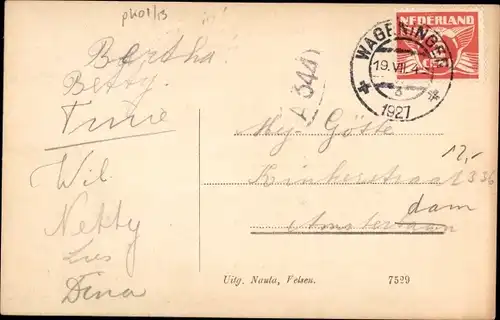 pk01/13
NEDERLAND
WAGENINGEN
19.VII.4
3
1927
A344
Bertha.
Betty.
Tine
Wil
Netty
Lies
Dina
Mej. Götte
Kinkerstraat 336
12,-
dam
Amsterdam
Uitg. Nauta, Velsen.
7529